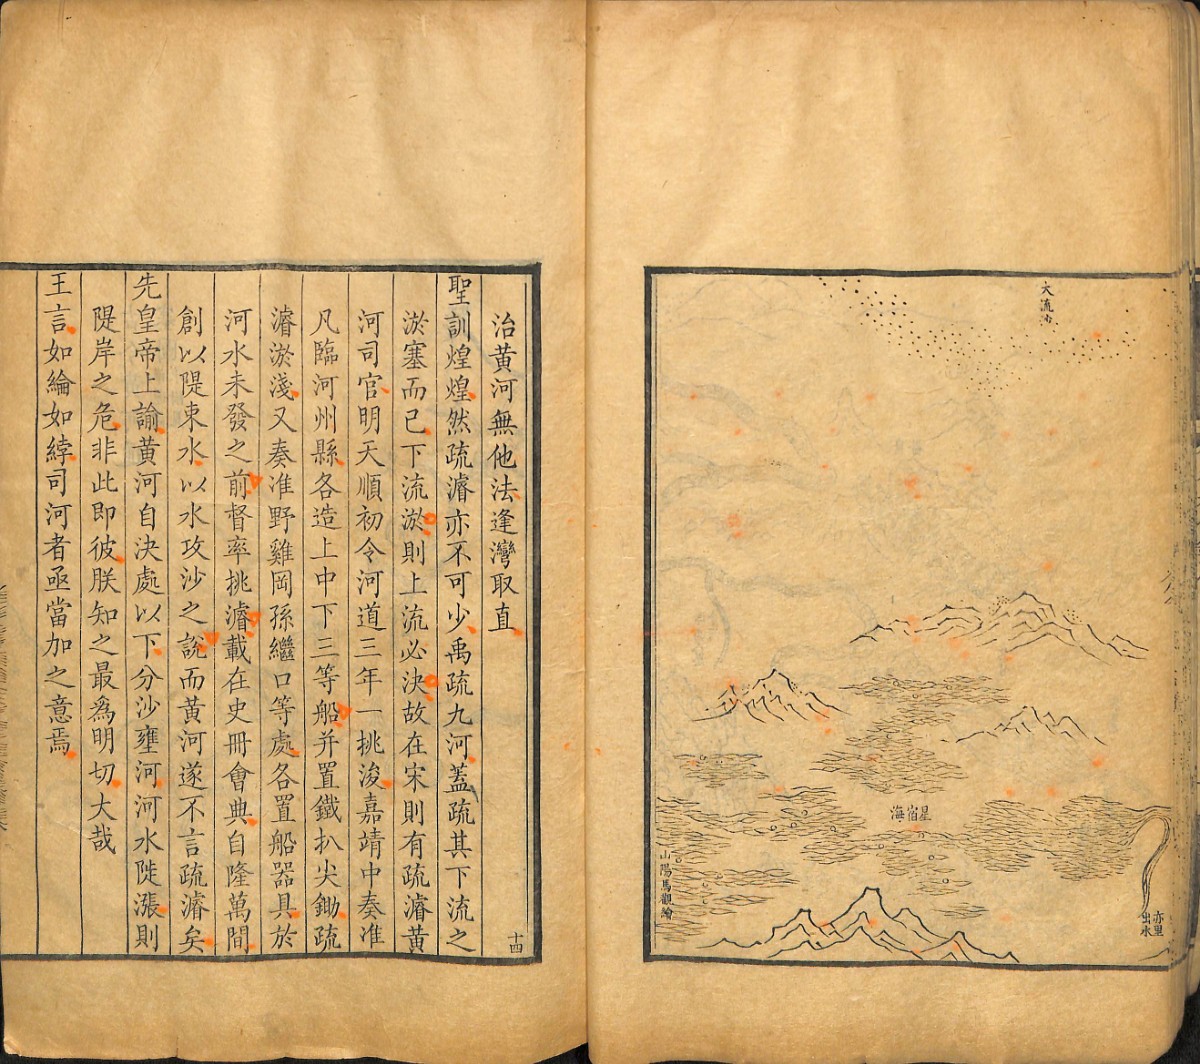 大流沙
星宿海
亦里
出水
山陽馬觀繪
治黃河無他法逢灣取直
聖訓煌煌然疏濬亦不可少禹疏九河蓋疏其下流之
淤塞而已下流淤則上流必決故在宋則有疏濬黃
河司官明天順初令河道三年一挑浚嘉靖中奏准
凡臨河州縣各造上中下三等船并置鐵扒尖鋤疏
濬淤淺又奏准野雞岡孫繼口等處各置船器具於
河水未發之前督率挑濬載在史冊會典自隆萬間
創以隄束水以水攻沙之說而黃河遂不言疏濬矣
先皇帝上諭黃河自決處以下分沙壅河河水陡漲則
隄岸之危非此即彼朕知之最爲明切大哉
王言如綸如綍司河者亟當加之意焉
十四